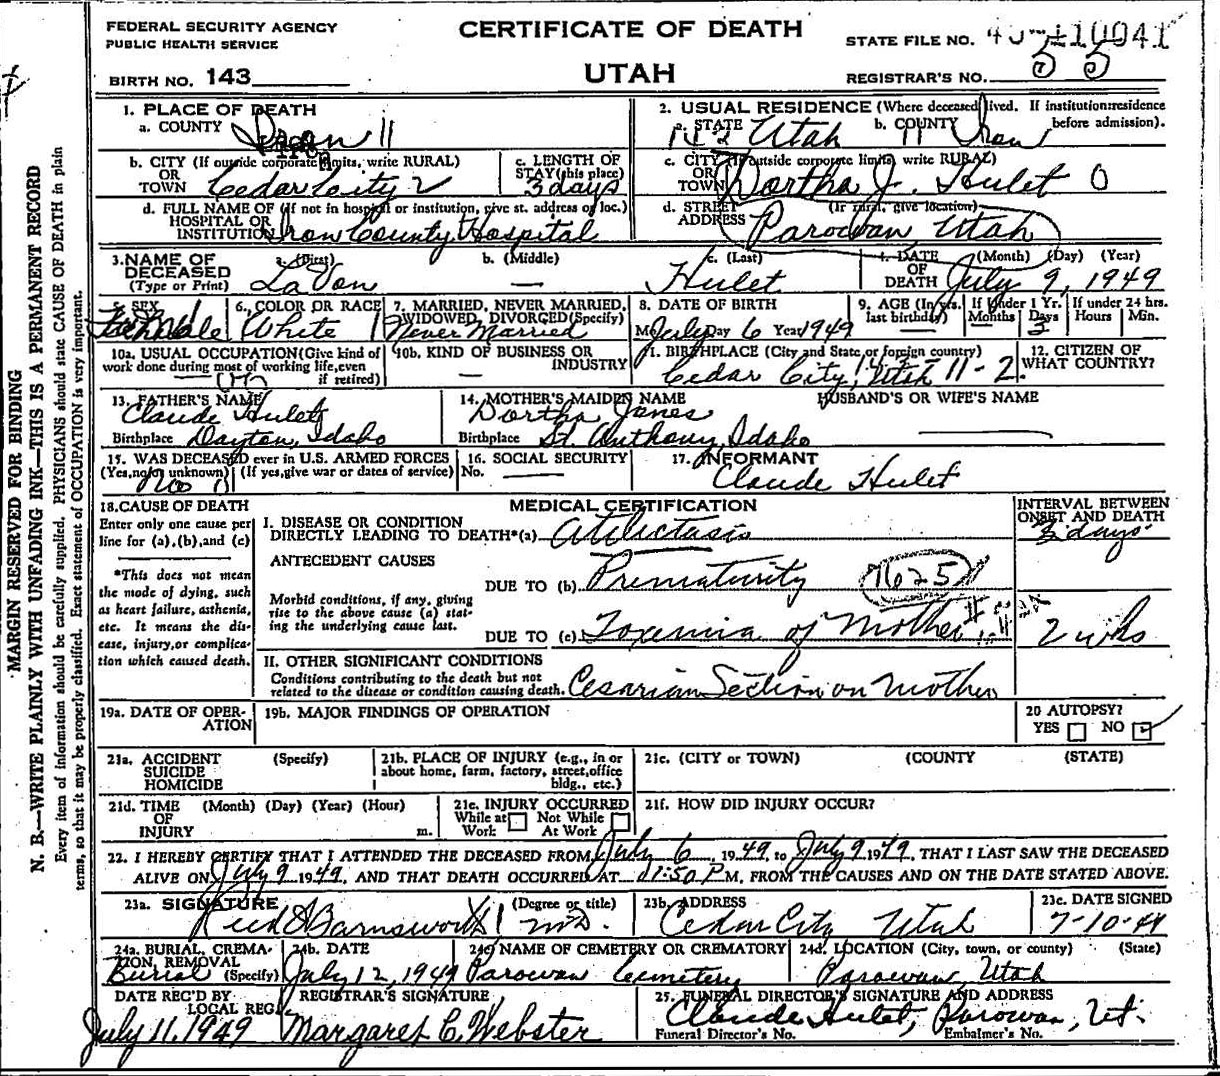 FEDERAL SECURITY AGENCY
PUBLIC HEALTH SERVICE
CERTIFICATE OF DEATH
STATE FILE NO.
BIRTH NO. 143
UTAH
REGISTRAR'S NO. 55
MARGIN RESERVED FOR BINDING
N. B.—WRITE PLAINLY WITH UNFADING INK—THIS IS A PERMANENT RECORD
Every item of information should be carefully supplied. PHYSICIANS should state CAUSE OF DEATH in plain
terms, so that it may be properly classified. Exact statement of OCCUPATION is very important.
1. PLACE OF DEATH
a. COUNTY Iron 11
2. USUAL RESIDENCE (Where deceased lived. If institution: residence
before admission).
a. STATE Utah b. COUNTY 11 Iron
b. CITY (If outside corporate limits, write RURAL)
OR
TOWN Cedar City 2
c. LENGTH OF
STAY (this place)
3 days
c. CITY (If outside corporate limits, write RURAL)
OR
TOWN Dortha J. Hulet 0
d. FULL NAME OF (If not in hospital or institution, give st. address or loc.)
HOSPITAL OR
INSTITUTION Iron County Hospital
d. STREET (If rural, give location)
ADDRESS Parowan, Utah
3. NAME OF
DECEASED
(Type or Print)
a. (First) LaVon
b. (Middle) —
c. (Last) Hulet
4. DATE
OF
DEATH
(Month) (Day) (Year)
July 9, 1949
5. SEX
Male
6. COLOR OR RACE
White
7. MARRIED, NEVER MARRIED,
WIDOWED, DIVORCED (Specify)
Never Married
8. DATE OF BIRTH
Mo. July Day 6 Year 1949
9. AGE (In yrs.
last birthday) —
If Under 1 Yr.
Months Days
3
If under 24 hrs.
Hours Min.
10a. USUAL OCCUPATION (Give kind of
work done during most of working life, even
if retired)
10b. KIND OF BUSINESS OR
INDUSTRY
—
11. BIRTHPLACE (City and State, or foreign country)
Cedar City, Utah 11-2
12. CITIZEN OF
WHAT COUNTRY?
13. FATHER'S NAME
Claude Hulet
Birthplace Dayton, Idaho
14. MOTHER'S MAIDEN NAME
Dortha Janes
Birthplace St. Anthony, Idaho
HUSBAND'S OR WIFE'S NAME
—
15. WAS DECEASED ever in U.S. ARMED FORCES
(Yes, no, or unknown) (If yes, give war or dates of service)
No
16. SOCIAL SECURITY
No. —
17. INFORMANT
Claude Hulet
18. CAUSE OF DEATH
Enter only one cause per
line for (a), (b), and (c)
*This does not mean
the mode of dying, such
as heart failure, asthenia,
etc. It means the dis-
ease, injury, or complica-
tion which caused death.
MEDICAL CERTIFICATION
INTERVAL BETWEEN
ONSET AND DEATH
I. DISEASE OR CONDITION
DIRECTLY LEADING TO DEATH*(a) Atilictasis 3 days
ANTECEDENT CAUSES
DUE TO (b) Prematurity 7625
Morbid conditions, if any, giving
rise to the above cause (a) stat-
ing the underlying cause last.
DUE TO (c) Toxemia of Mother 2 wks
II. OTHER SIGNIFICANT CONDITIONS
Conditions contributing to the death but not
related to the disease or condition causing death. Cesarian Section on mother
19a. DATE OF OPER-
ATION
19b. MAJOR FINDINGS OF OPERATION
20 AUTOPSY?
YES NO
21a. ACCIDENT
SUICIDE
HOMICIDE
(Specify)
21b. PLACE OF INJURY (e.g., in or
about home, farm, factory, street, office
bldg., etc.)
21c. (CITY or TOWN) (COUNTY) (STATE)
21d. TIME (Month) (Day) (Year) (Hour)
OF
INJURY m.
21e. INJURY OCCURRED
While at Not While
Work At Work
21f. HOW DID INJURY OCCUR?
22. I HEREBY CERTIFY THAT I ATTENDED THE DECEASED FROM July 6, 1949, to July 9 1949, THAT I LAST SAW THE DECEASED
ALIVE ON July 9 1949, AND THAT DEATH OCCURRED AT 11:50 P M, FROM THE CAUSES AND ON THE DATE STATED ABOVE.
23a. SIGNATURE (Degree or title)
M.D.
23b. ADDRESS
Cedar City Utah
23c. DATE SIGNED
7-10-49
24a. BURIAL, CREMA-
TION, REMOVAL
Burial (Specify)
24b. DATE
July 12, 1949
24c. NAME OF CEMETERY OR CREMATORY
Parowan Cemetery
24d. LOCATION (City, town, or county) (State)
Parowan, Utah
DATE REC'D BY
LOCAL REG.
July 11, 1949
REGISTRAR'S SIGNATURE
Margaret C. Webster
25. FUNERAL DIRECTOR'S SIGNATURE AND ADDRESS
Claude Hulet, Parowan, Ut.
Funeral Director's No. Embalmer's No.